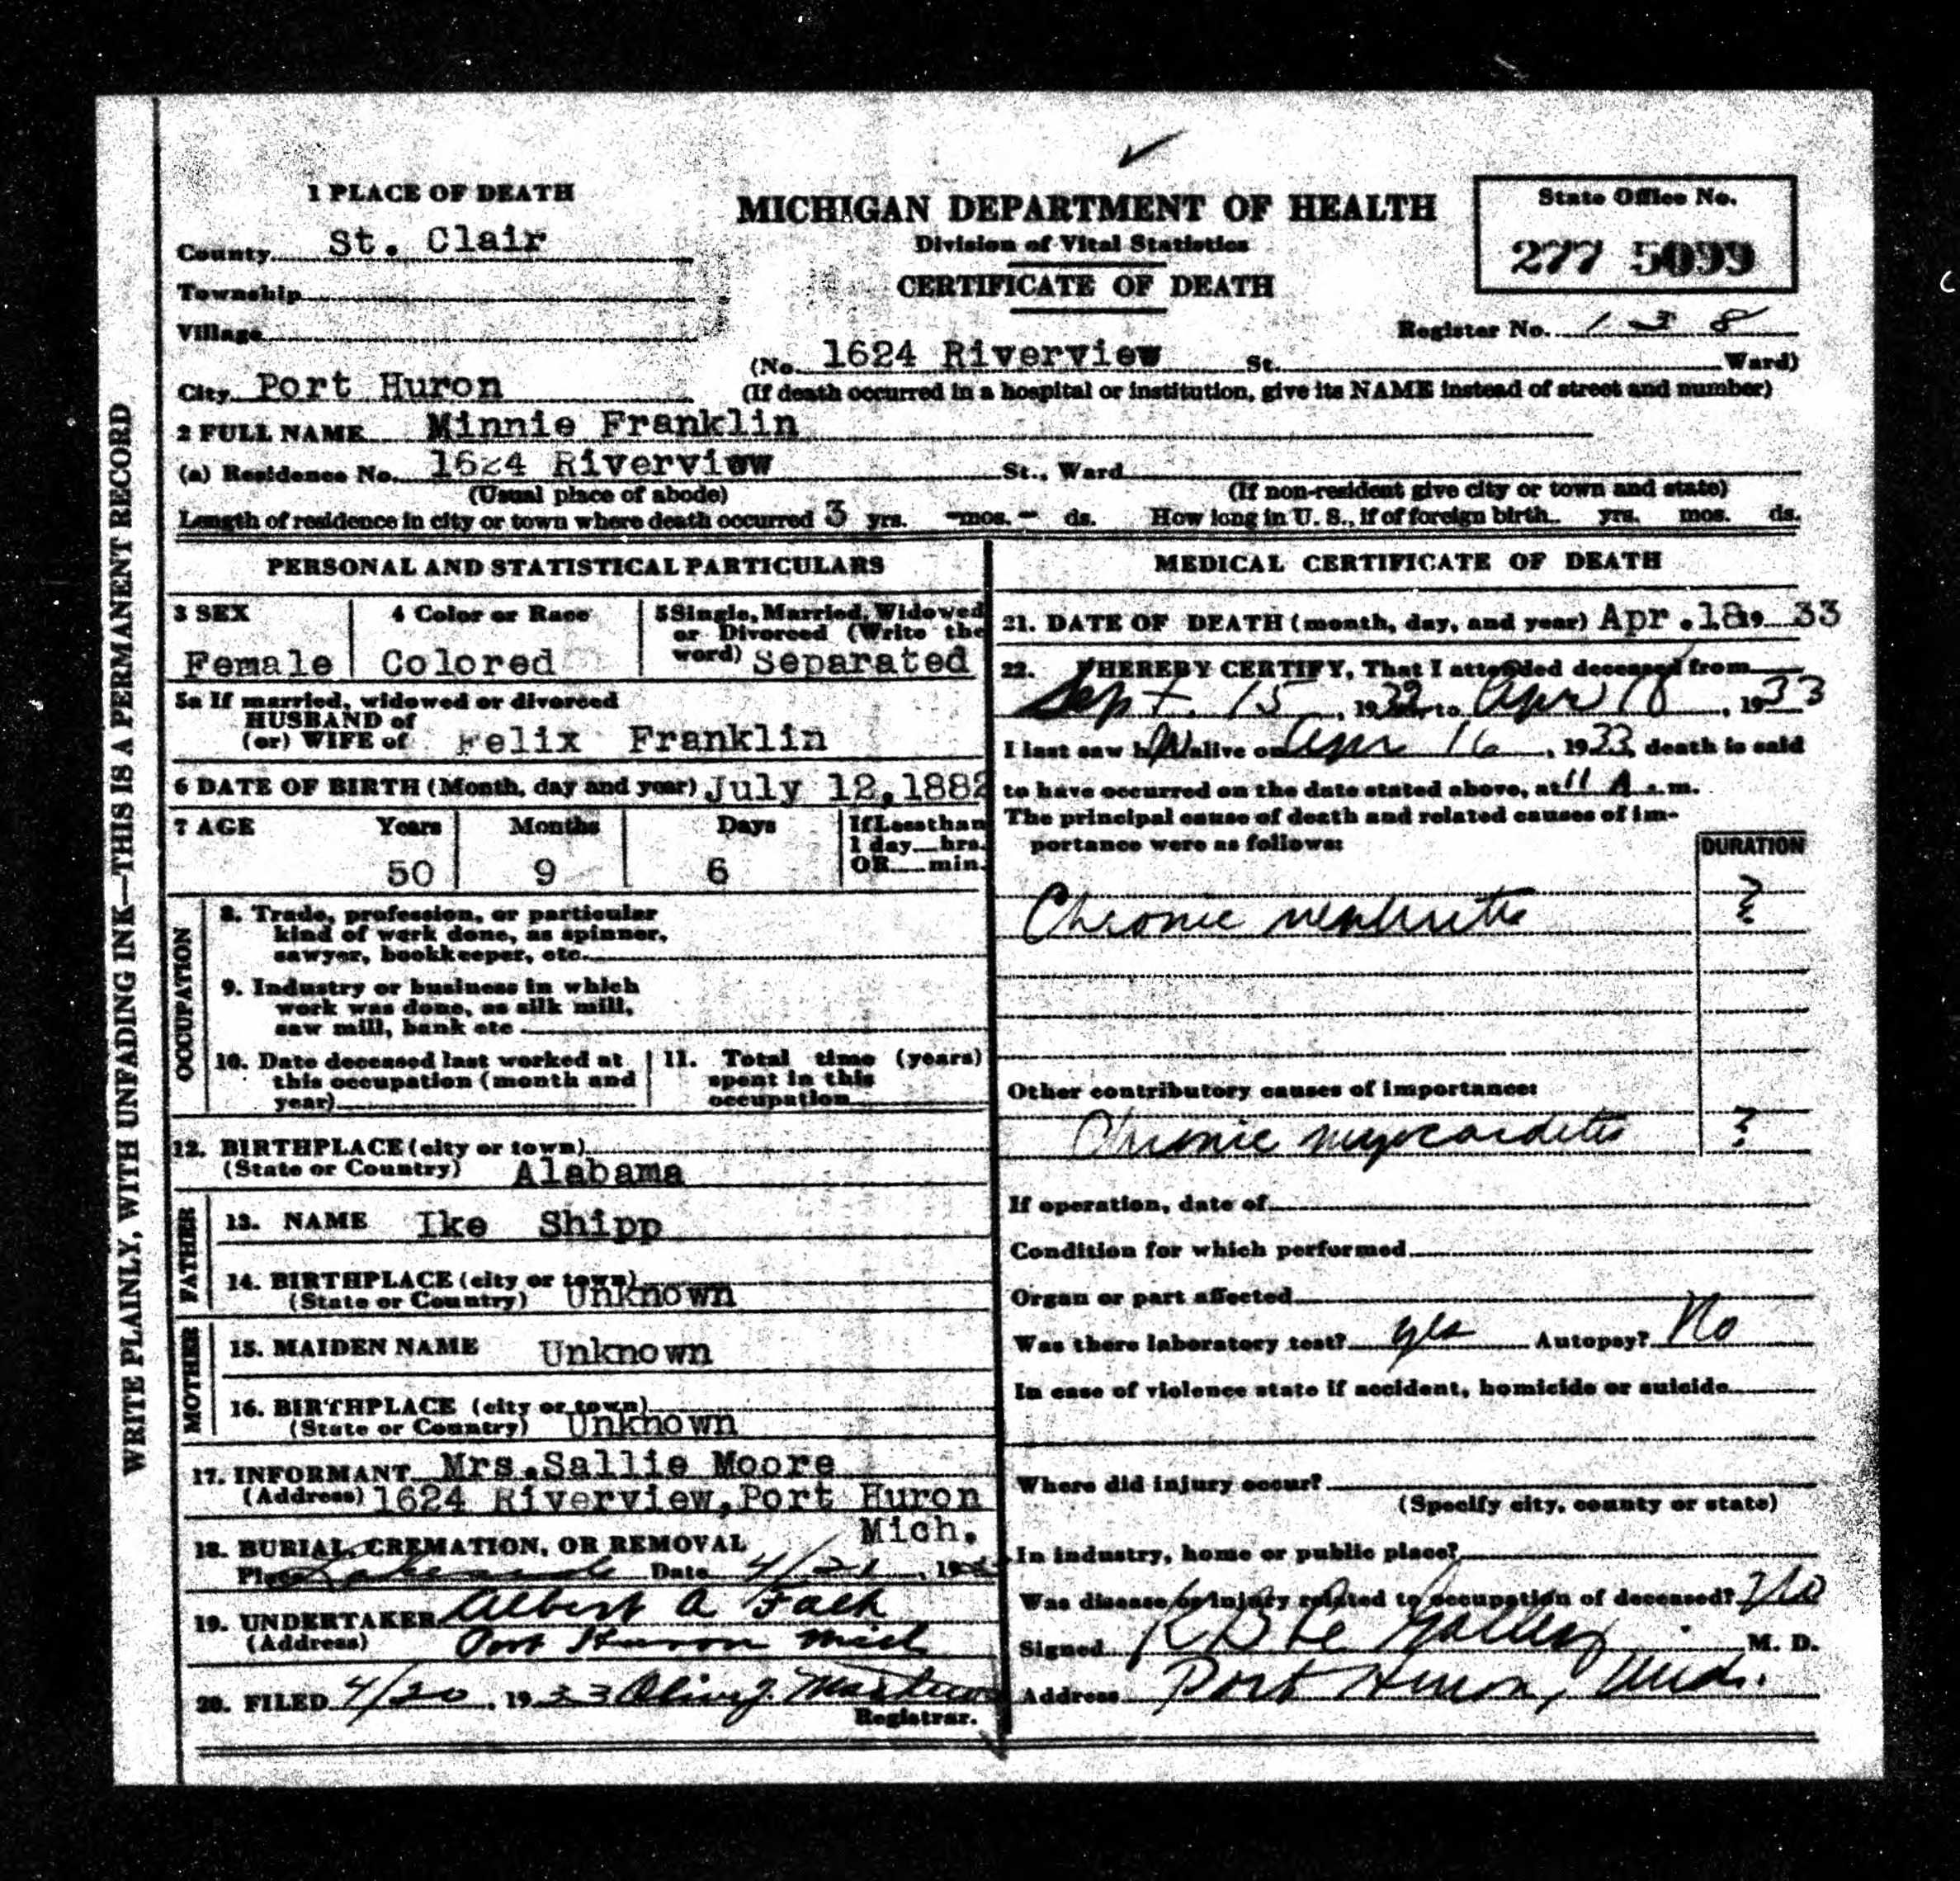 1 PLACE OF DEATH
County St. Clair
Township
Village
City Port Huron
MICHIGAN DEPARTMENT OF HEALTH
Division of Vital Statistics
CERTIFICATE OF DEATH
State Office No.
277 5099
Register No. 138
(No. 1624 Riverview St. Ward)
(If death occurred in a hospital or institution, give its NAME instead of street and number)
2 FULL NAME Minnie Franklin
(a) Residence No. 1624 Riverview St., Ward
(Usual place of abode) (If non-resident give city or town and state)
Length of residence in city or town where death occurred 3 yrs. - mos. - ds. How long in U. S., if of foreign birth. yrs. mos. ds.
WRITE PLAINLY, WITH UNFADING INK—THIS IS A PERMANENT RECORD
PERSONAL AND STATISTICAL PARTICULARS
3 SEX
Female
4 Color or Race
Colored
5 Single, Married, Widowed
or Divorced (Write the
word) Separated
5a If married, widowed or divorced
HUSBAND of
(or) WIFE of Felix Franklin
6 DATE OF BIRTH (Month, day and year) July 12, 1882
7 AGE Years Months Days If Less than
1 day hrs.
OR min.
50 9 6
OCCUPATION
8. Trade, profession, or particular
kind of work done, as spinner,
sawyer, bookkeeper, etc.
9. Industry or business in which
work was done, as silk mill,
saw mill, bank etc
10. Date deceased last worked at
this occupation (month and
year)
11. Total time (years)
spent in this
occupation
12. BIRTHPLACE (city or town)
(State or Country) Alabama
FATHER
13. NAME Ike Shipp
14. BIRTHPLACE (city or town)
(State or Country) Unknown
MOTHER
15. MAIDEN NAME Unknown
16. BIRTHPLACE (city or town)
(State or Country) Unknown
17. INFORMANT Mrs. Sallie Moore
(Address) 1624 Riverview, Port Huron
Mich.
18. BURIAL, CREMATION, OR REMOVAL
Place Lakeside Date 4/21, 19
19. UNDERTAKER Albert A Falk
(Address) Port Huron Mich
20. FILED 4/20, 1933
Registrar.
MEDICAL CERTIFICATE OF DEATH
21. DATE OF DEATH (month, day, and year) Apr. 18 19 33
22. I HEREBY CERTIFY, That I attended deceased from
Sept. 15, 1932 to Apr 18, 1933
I last saw her alive on Apr 16, 1933, death is said
to have occurred on the date stated above, at 11 A.m.
The principal cause of death and related causes of im-
portance were as follows:
DURATION
Chronic nephritis ?
Other contributory causes of importance:
Chronic myocarditis ?
If operation, date of
Condition for which performed
Organ or part affected
Was there laboratory test? yes Autopsy? No
In case of violence state if accident, homicide or suicide
Where did injury occur?
(Specify city, county or state)
In industry, home or public place?
Was disease or injury related to occupation of deceased? No
Signed M. D.
Address Port Huron, Mich.